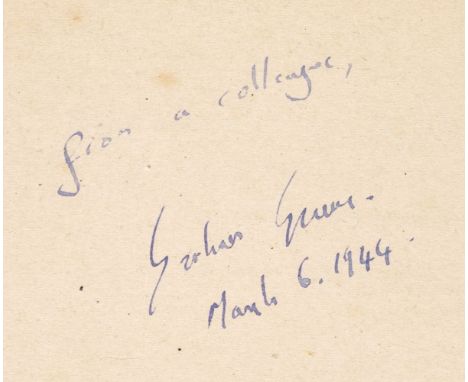 from a colleague,
Graham Greene.
March 6. 1944.